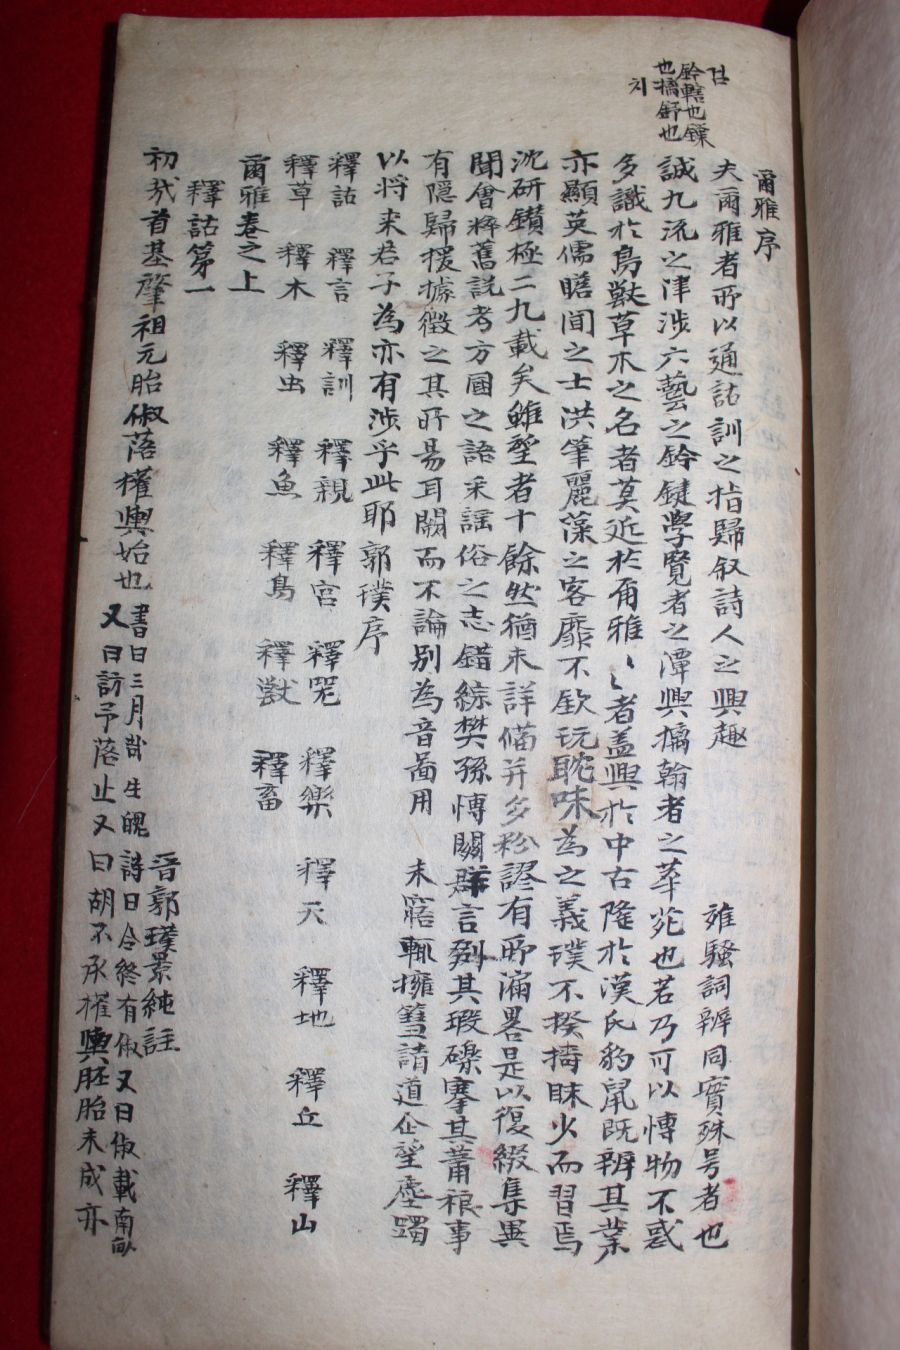 검
鈐轄也鏁
也摛舒也
치
爾雅序
夫爾雅者所以通詁訓之指歸叙詩人之興趣 雉騷詞辨同實殊号者也
誠九流之津涉六藝之鈐鍵學覽者之潭奧摛翰者之萃苑也若乃可以博物不惑
多識於鳥獸草木之名者莫近於爾雅〻者盖興於中古隆於漢氏豹鼠既辨其業
亦顯英儒瞻聞之士洪筆麗藻之客靡不欽玩耽味為之義璞不揆擣昧少而習焉
沈研鑽極二九載矣雖聖者十餘然猶未詳備并多紛謬有所漏畧是以復綴集異
聞會粹舊説考方國之語采謡俗之志錯綜樊孫博關群言剟其瑕礫搴其蕭稂事
有隱歸援據徵之其所易耳闕而不論别為音啚用 未寤輒擁篲請道企望塵躅
以将来君子為亦有涉乎此耶郭璞序
釋詁 釋言 釋訓 釋親 釋宮 釋器 釋樂 釋天 釋地 釋丘 釋山
釋草 釋木 釋虫 釋魚 釋鳥 釋獸 釋畜
爾雅卷之上
釋詁第一 晋郭璞景純註
初哉首基肇祖元胎俶落權輿始也 書曰三月哉生魄詩曰令終有俶又曰俶載南畝
又曰訪予落止又曰胡不承權輿胚胎未成亦